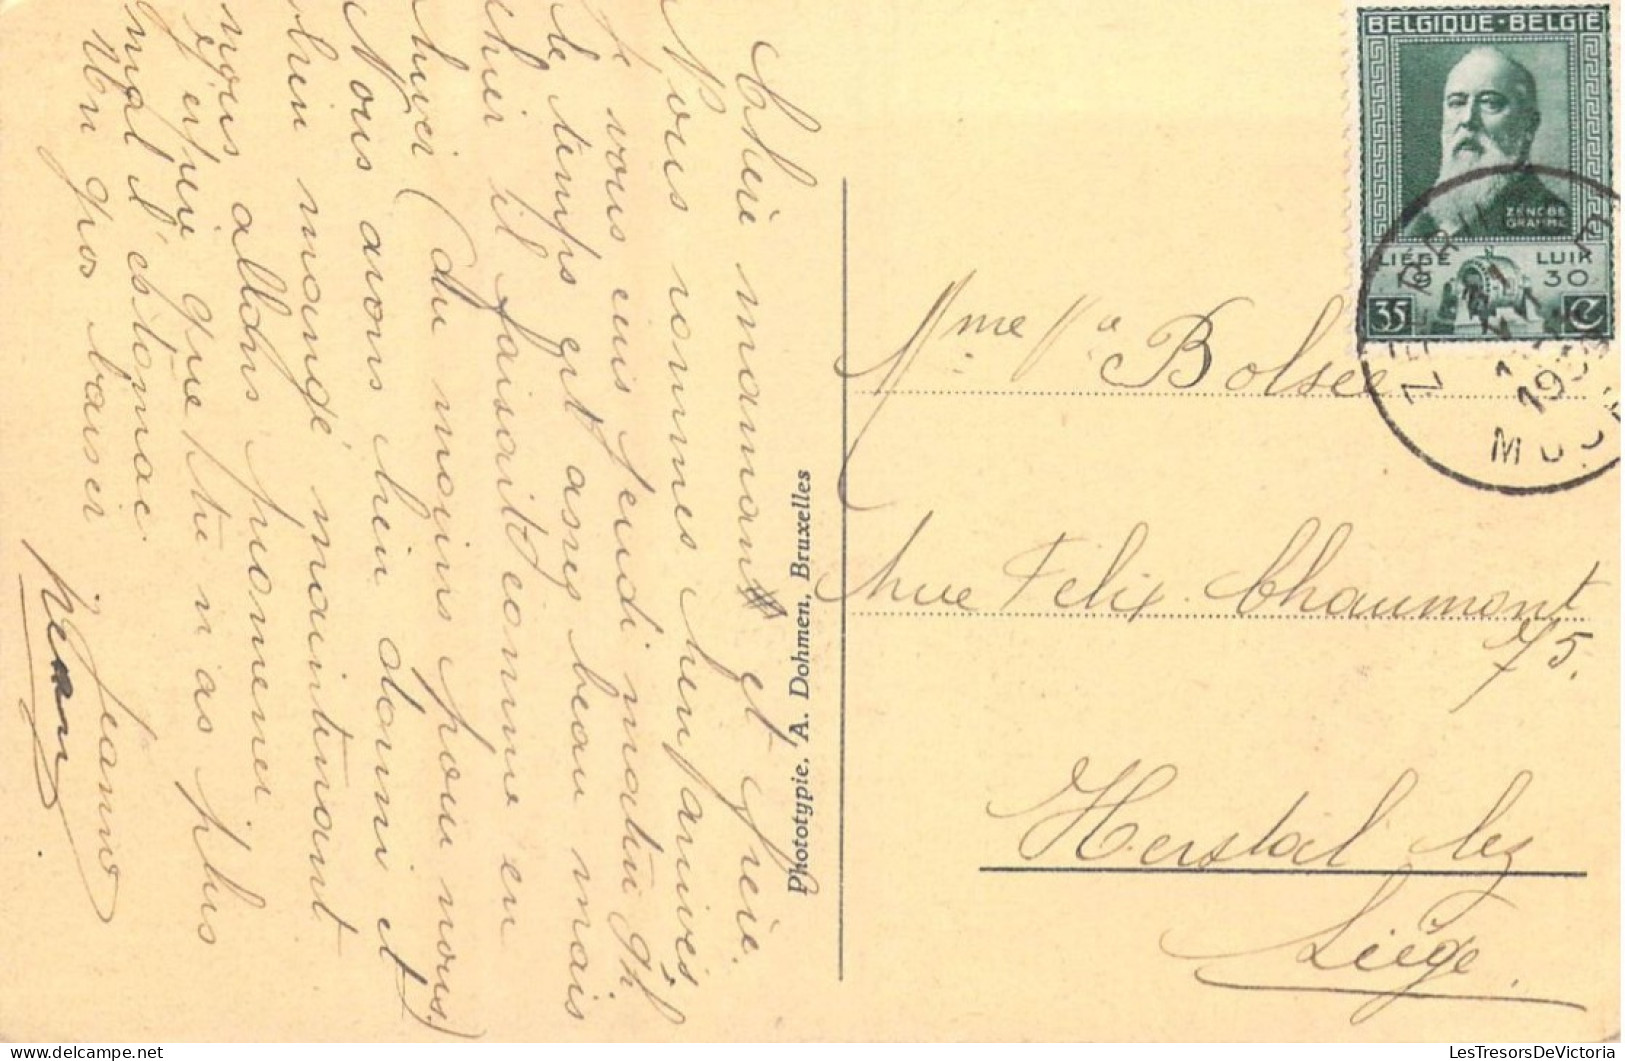 Chère maman et frère.
Nous sommes bien arrivés,
je vous écris jeudi matin 9h
le temps est assez beau mais
hier il faisait comme en
hiver (du moins pour nous.)
Nous avons bien dormi et
bien mangé maintenant
nous allons promener
j'espère que tu n'as plus
mal à l'estomac.
Un gros baiser
Jeanne
Jean
Phototypie. A. Dohmen, Bruxelles
BELGIQUE-BELGIË
ZÉNOBE
GRAMME
LIÉGE LUIK
19 30
35 c
Mme Ve Bolsée
Rue Felix Chaumont
75.
Herstal lez
Liège.
LesTresorsDeVictoria.com